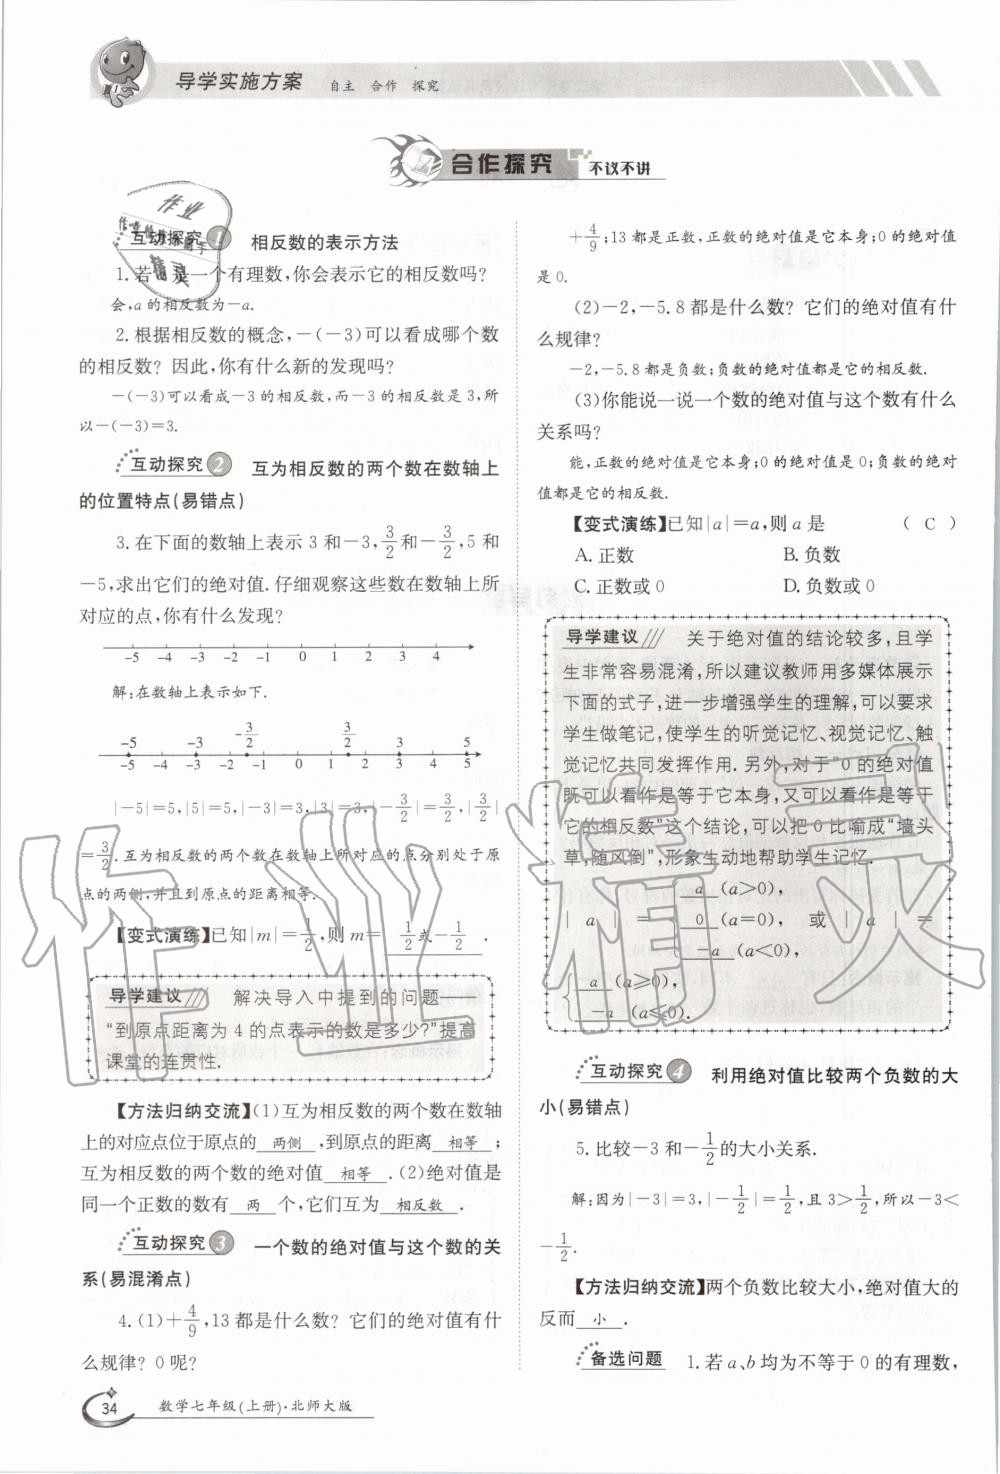 导学实施方案 自主 合作 探究
合作探究 不议不讲
互动探究1 相反数的表示方法
1.若 是一个有理数,你会表示它的相反数吗?
会,a的相反数为-a.
2.根据相反数的概念,-(-3)可以看成哪个数
的相反数? 因此,你有什么新的发现吗?
-(-3)可以看成-3的相反数,而-3的相反数是3,所
以-(-3)=3.
互动探究2 互为相反数的两个数在数轴上
的位置特点(易错点)
3.在下面的数轴上表示3和-3,3/2和-3/2,5和
-5,求出它们的绝对值.仔细观察这些数在数轴上所
对应的点,你有什么发现?
-5 -4 -3 -2 -1 0 1 2 3 4
解:在数轴上表示如下.
-5 -3 -3/2 3/2 3 5
-5 -4 -3 -2 -1 0 1 2 3 4 5
|-5|=5,|5|=5,|-3|=3,|3|=3,|-3/2|=3/2,|3/2|
=3/2.互为相反数的两个数在数轴上所对应的点分别处于原
点的两侧,并且到原点的距离相等.
【变式演练】已知|m|=1/2,则m= 1/2或-1/2 .
导学建议 解决导入中提到的问题——
“到原点距离为4的点表示的数是多少?”提高
课堂的连贯性.
【方法归纳交流】(1)互为相反数的两个数在数轴
上的对应点位于原点的 两侧 ,到原点的距离 相等 ;
互为相反数的两个数的绝对值 相等 .(2)绝对值是
同一个正数的数有 两 个,它们互为 相反数 .
互动探究3 一个数的绝对值与这个数的关
系(易混淆点)
4.(1)+4/9,13都是什么数? 它们的绝对值有什
么规律? 0呢?
+4/9;13都是正数,正数的绝对值是它本身;0的绝对值
是0.
(2)-2,-5.8都是什么数? 它们的绝对值有什
么规律?
-2,-5.8都是负数;负数的绝对值都是它的相反数.
(3)你能说一说一个数的绝对值与这个数有什么
关系吗?
能,正数的绝对值是它本身;0的绝对值是0;负数的绝对
值都是它的相反数.
【变式演练】已知|a|=a,则a是 ( C )
A.正数 B.负数
C.正数或0 D.负数或0
导学建议 关于绝对值的结论较多,且学
生非常容易混淆,所以建议教师用多媒体展示
下面的式子,进一步增强学生的理解,可以要求
学生做笔记,使学生的听觉记忆、视觉记忆、触
觉记忆共同发挥作用.另外,对于“0的绝对值
既可以看作是等于它本身,又可以看作是等于
它的相反数”这个结论,可以把0比喻成“墙头
草,随风倒”,形象生动地帮助学生记忆.
a (a>0),
|a|={ 0 (a=0), 或 |a|=
-a (a<0),
{ a (a≥0),
-a (a≤0).
互动探究4 利用绝对值比较两个负数的大
小(易错点)
5.比较-3和-1/2的大小关系.
解:因为|-3|=3,|-1/2|=1/2,且3>1/2,所以-3<
-1/2.
【方法归纳交流】两个负数比较大小,绝对值大的
反而 小 .
备选问题 1.若a、b均为不等于0的有理数,
34 数学七年级(上册)·北师大版
作业精灵